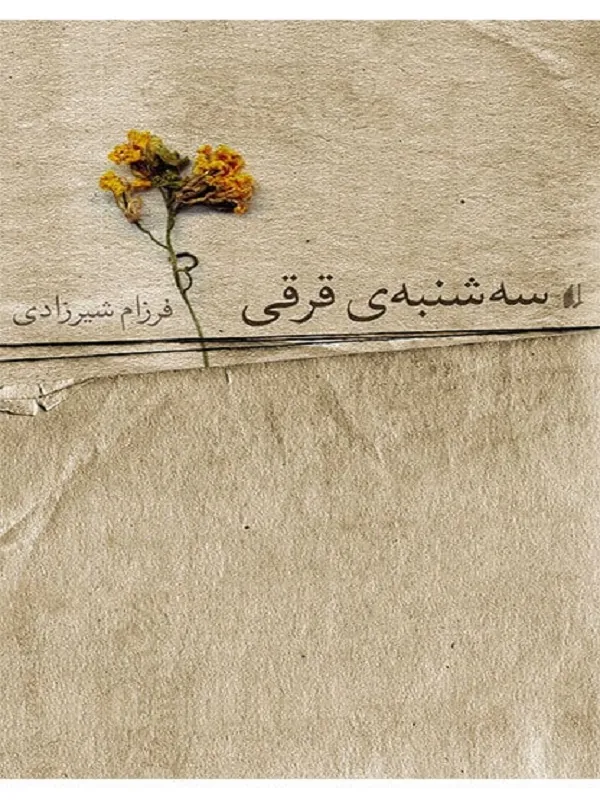 سه‌شنبه‌ی قرقی
فرزام شیرزادی